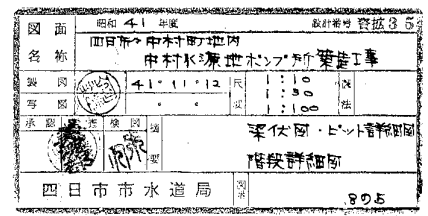 図面名称
昭和 41 年度 設計番号 容拡35
四日市々中村町地内
中村水源地ポンプ所築造工事
製図 41・11・12 尺度 1:10 1:30 1:100
写図 ・ ・
承認 検図 摘要
梁伏図・ピット詳細図
階段詳細図
四日市市水道局 図示 8の5